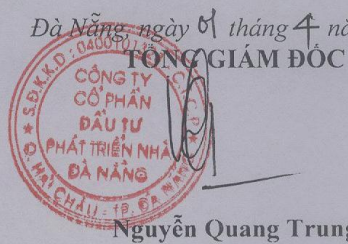 Đà Nẵng, ngày 01 tháng 4 nă
TỔNG GIÁM ĐỐC
S.Đ.K.K.D: 0400101
C.T.C.P
CÔNG TY
CỔ PHẦN
ĐẦU TƯ
PHÁT TRIỂN NHÀ
ĐÀ NẴNG
Q. HẢI CHÂU - TP. ĐÀ NẴNG
Nguyễn Quang Trung